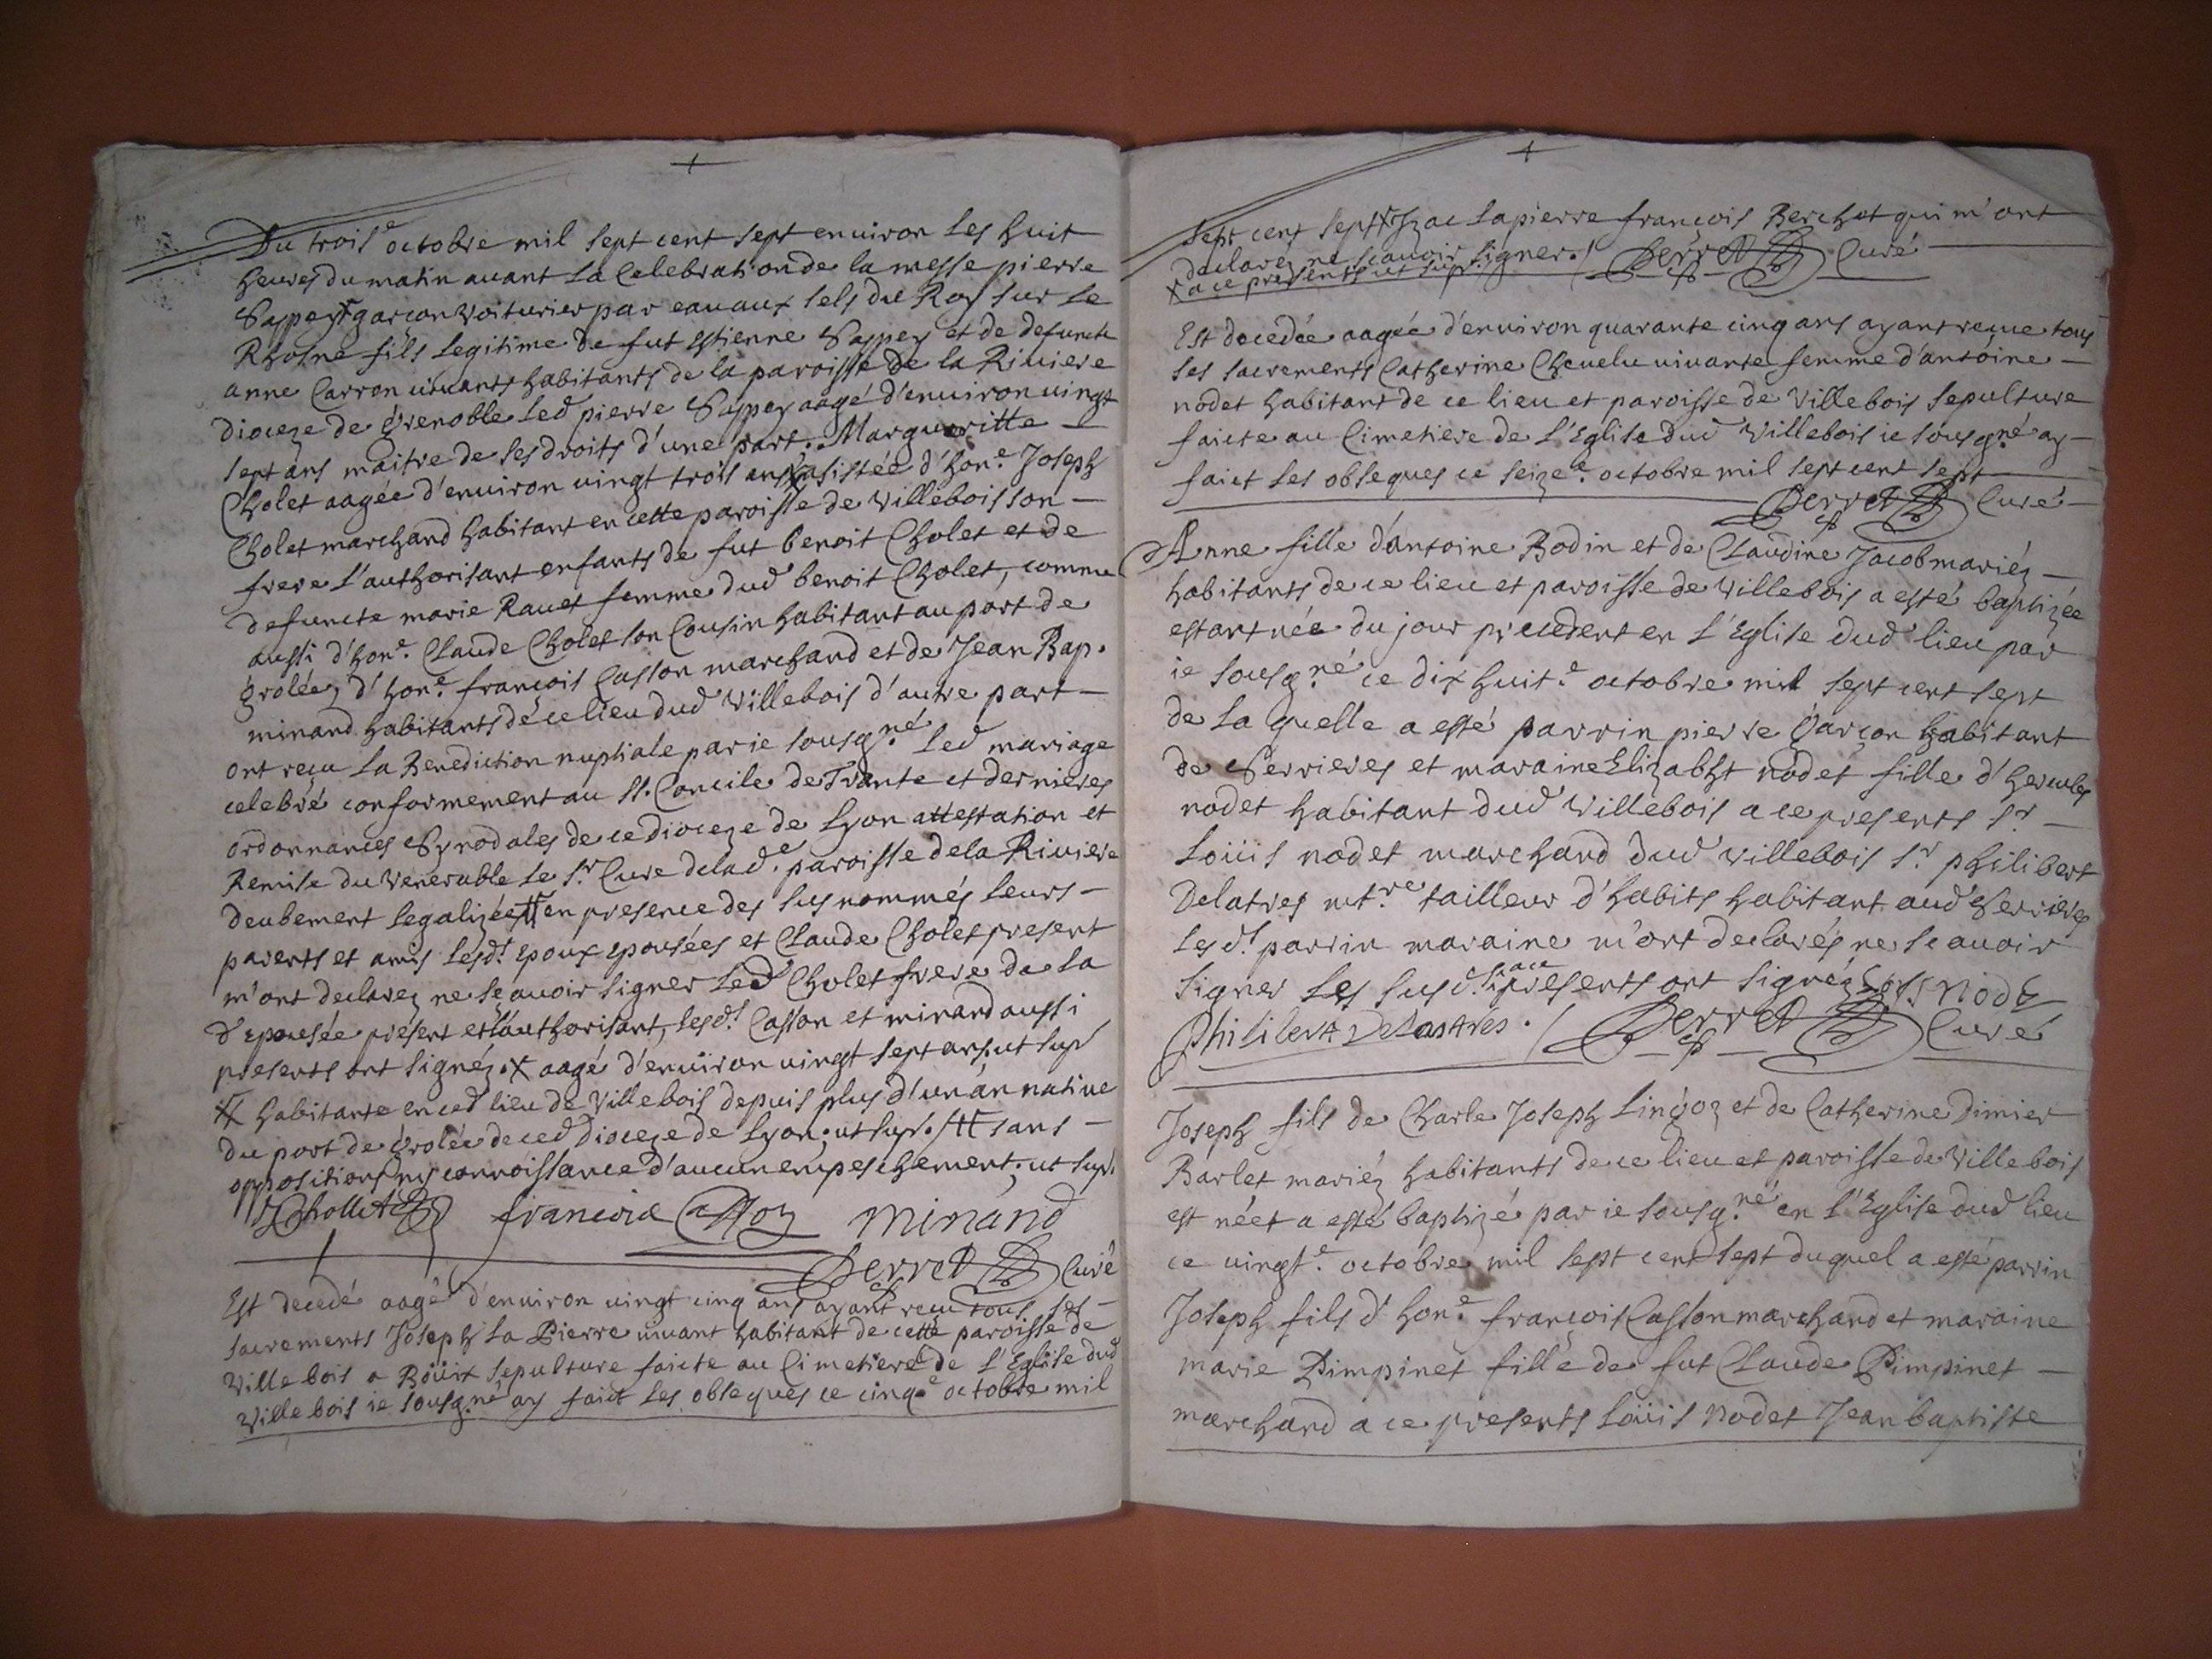 Du trois.e octobre mil sept cent sept enuiron les huit
heures du matin auant la Celebration de la messe pierre
Sappey garçon voiturier par eau aux sels du Roy sur le
Rhosne fils legitime de fut Estienne Sappey et de defuncte
anne Carron uiuants habitants de la paroisse de la Riuiere
dioceze de Grenoble led pierre Sappey aagé d'enuiron uingt
sept ans maitre de ses droits d'une part. Margueritte
Cholet aagée d'enuiron uingt trois ans asistée d'hon.e Joseph
Cholet marchand habitant en cette paroisse de Villebois son
frere l'authorisant enfants de fut benoit Cholet et de
defuncte marie Rauet femme dud benoit Cholet, comme
aussi d'hon.e Claude Cholet son Cousin habitant au port de
Grolée, d'hon.e françois Casson marchand et de Jean Bap.
minand habitants de ce lieu dud Villebois d'autre part
ont reçu la Benediction nuptiale par ie sousg.né led mariage
celebré conformement au St. Concile de Trante et dernieres
ordonnances Synodales de ce dioceze de Lyon attestation et
Remise du Venerable le Sr. Cure de lad.e paroisse de la Riuiere
deubement legalizée en presence des susnommés leurs
parents et amis lesd.t epoux epousées et Claude Cholet present
m'ont declarez ne sçauoir signer led Cholet frere de la
d epousée present et l'authorisant, lesd.t Casson et minand aussi
presents ont signéz. X aagé d'enuiron uingt sept ans. ut sup
XX habitante en ced lieu de Villebois depuis plus d'un an natiue
du port de Grolée de ced Dioceze de Lyon. ut sup. / sans
opposition ny connoissance d'aucun empeschement. ut sup.
JCholletd francoix Casson minand
Perret Curé
Est decedé aagé d'enuiron uingt cinq ans ayant reçu tous ses
sacrements Joseph la Pierre uiuant habitant de cette paroisse de
Villebois a Boüix sepulture faicte au Cimetiere de l'Eglise dud
Villebois ie sousg.né ay faict les obseques ce cinq.e octobre mil
sept cent sept X Izac lapierre françois Berchet qui m'ont
declarez ne sçauoir signer. / Perret Curé
X a ce presents ut sup.
Est decedée aagée d'enuiron quarante cinq ans ayant reçue tous
ses sacrements Catherine Cheuelu uiuante femme d'antoine
nodet habitant de ce lieu et paroisse de Villebois sepulture
faicte au Cimetiere de l'Eglise dud Villebois ie sousg.né ay
faict les obseques ce seize.e octobre mil sept cent sept
Perret Curé
Anne fille d'antoine Bodin et de Claudine Jacob mariéz
habitants de ce lieu et paroisse de Villebois a esté baptizée
estant née du jour precedent en l'Eglise dud lieu par
ie sousg.né ce dix huit.e octobre mil sept cent sept
de la quelle a esté parrin pierre Garçon habitant
de Serrieres et maraine Elizabht nodet fille d'hercules
nodet habitant dud Villebois a ce presents Sr
Loüis nodet marchand dud Villebois Sr philibert
Delatres mt.re tailleur d'habits habitant aud Serrieres
lesd.t parrin maraine m'ont declarés ne scauoir
signer les susd.ts a ce presents ont signéz Loüis Nodet
Philibert Delastres. / Perret Curé
Joseph fils de Charle Joseph Lingoz et de Catherine Dimier
Barlet mariéz habitants de ce lieu et paroisse de Villebois
est né et a esté baptizé par ie sousg.né en l'Eglise dud lieu
ce uingt.e octobre mil sept cent sept duquel a esté parrin
Joseph fils d'hon.e françois Casson marchand et maraine
marie Pimpinet fille de fut Claude Pimpinet
marchand a ce presents Loüis nodet Jean baptiste